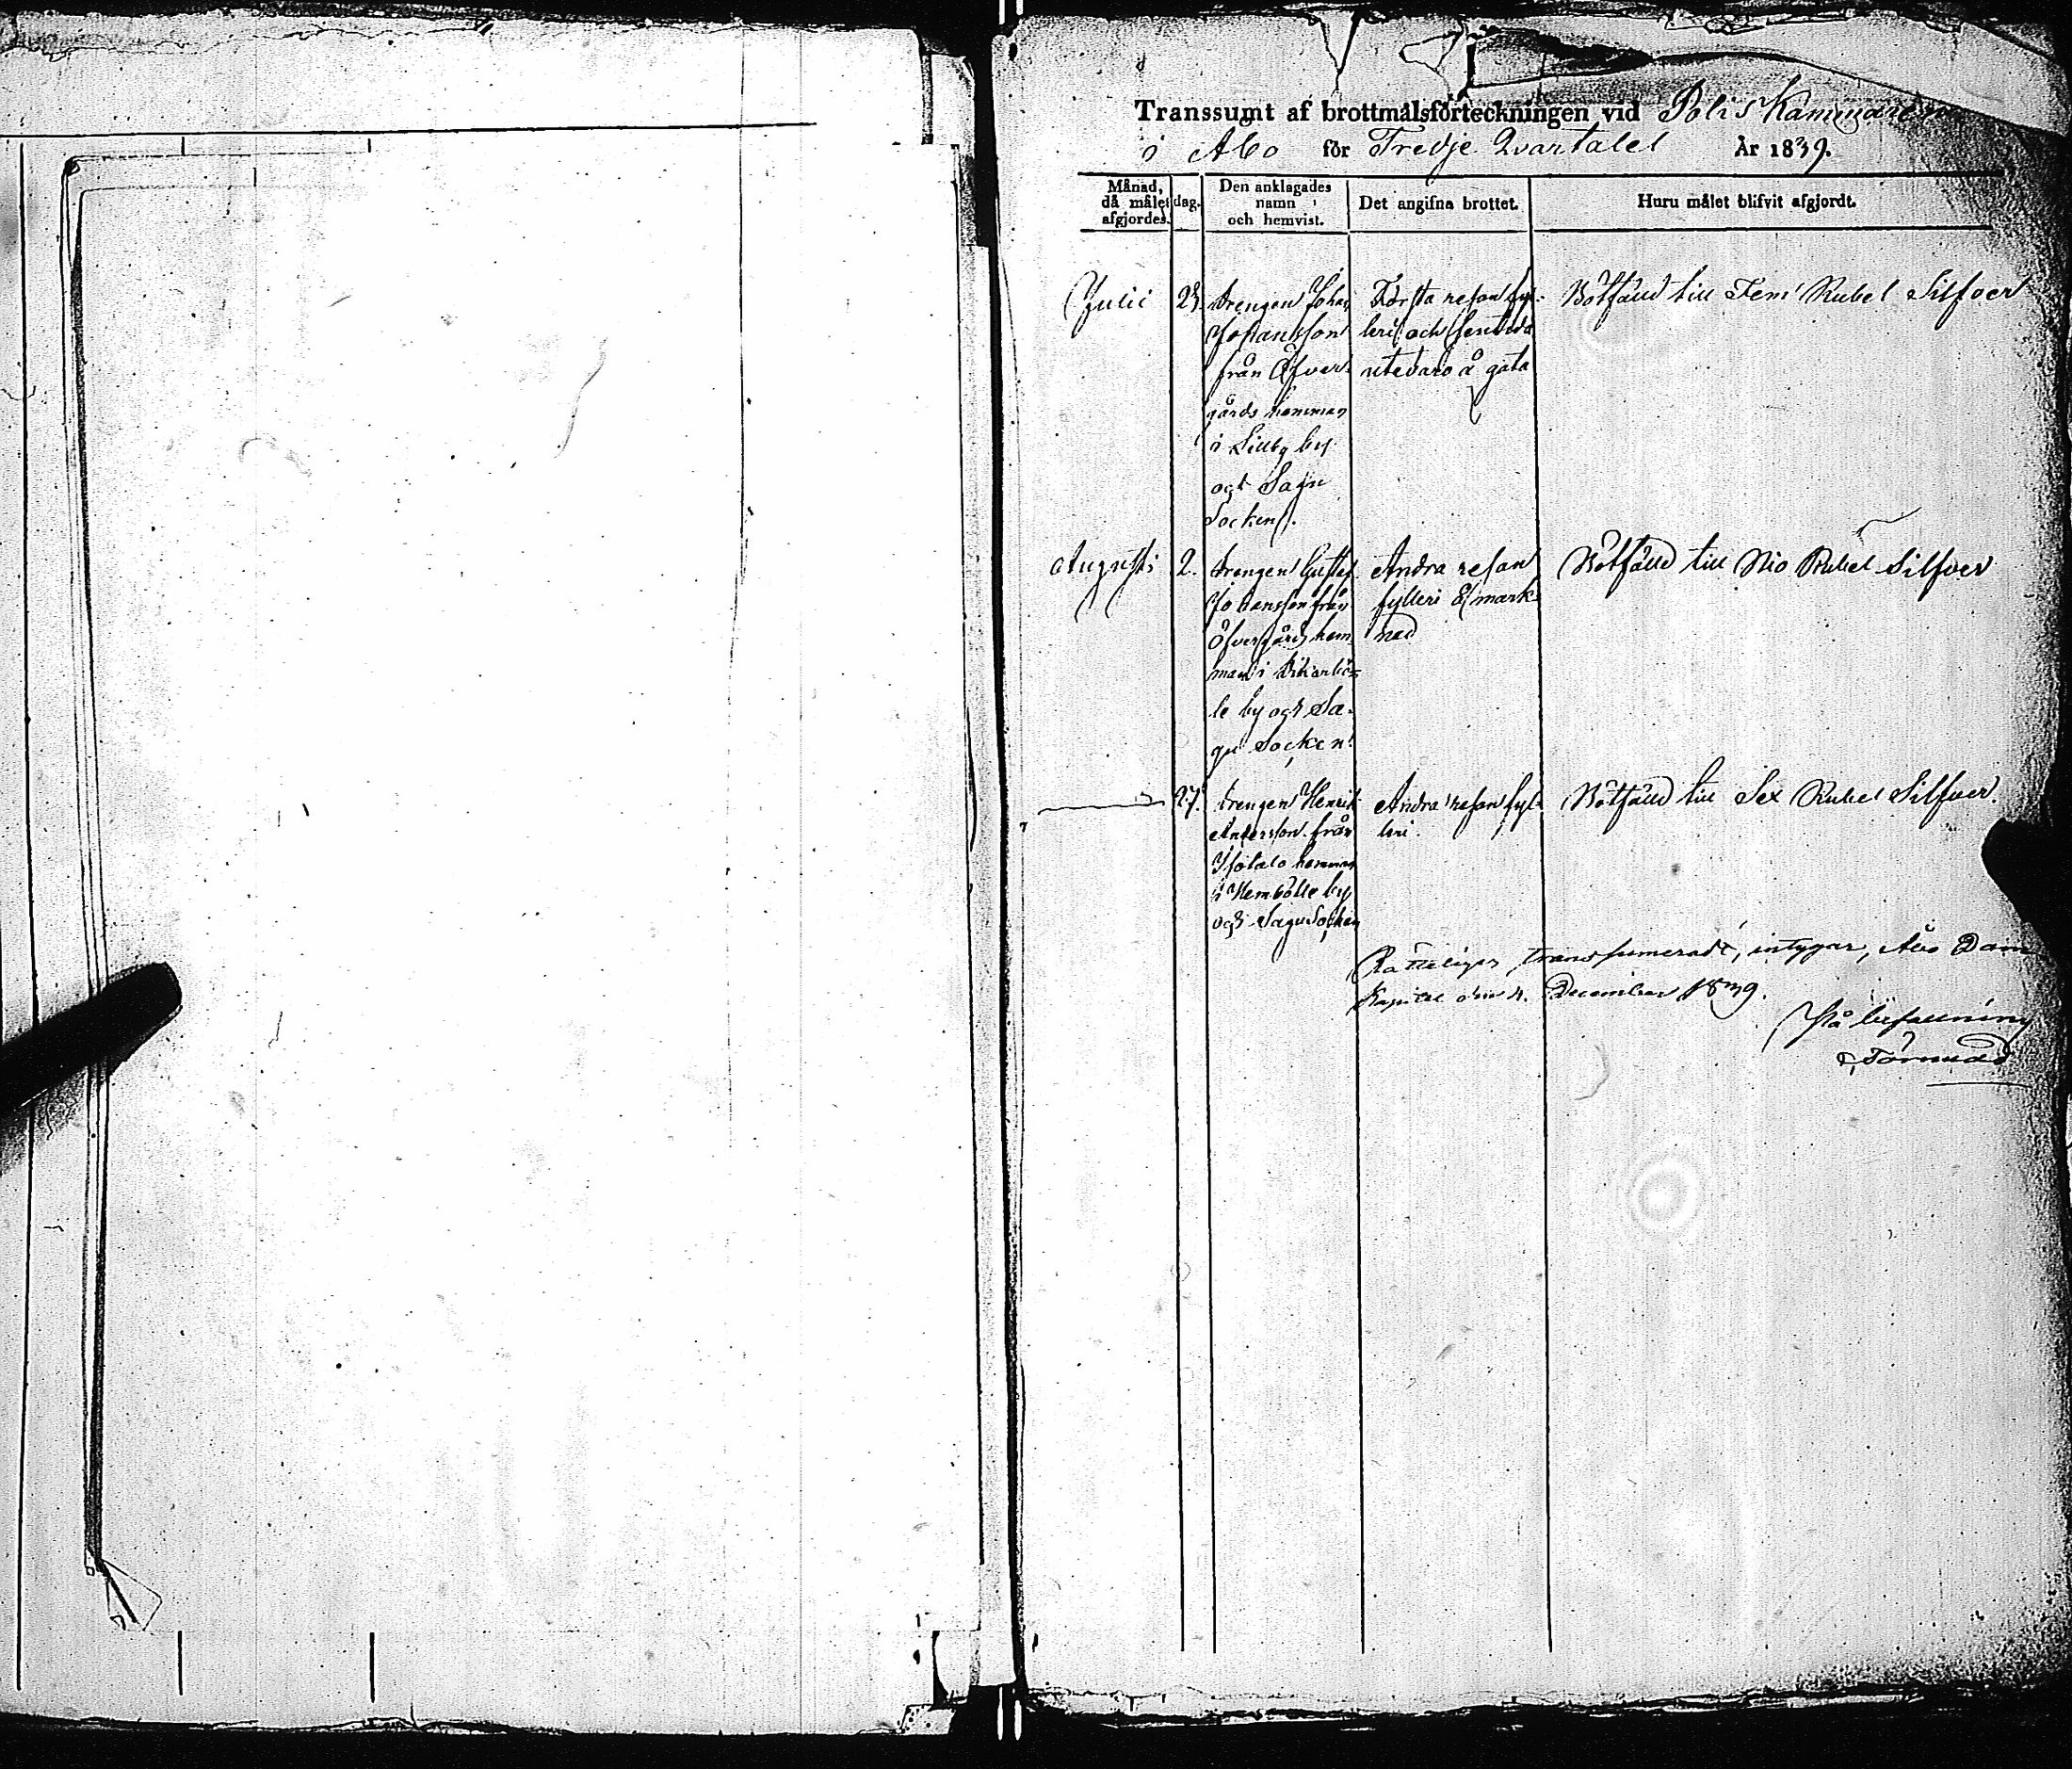 Transsumt af brottmålsförteckningen vid Polis Kammaren
i Åbo för Tredje Qvartalet År 1839.
Månad, då målet afgjordes. dag. Den anklagades namn och hemvist. Det angifna brottet. Huru målet blifvit afgjordt.
Julii 23. Drengen Johan Första resan fyl- Bötfälld till Fem Rubel Silfver
Johansson leri och
från Öfver- utevaro å gata
gårds hemman
i by
och Sagu
Socken.
Augusti 2. Drengen Gustaf Andra resan Bötfälld till Nio Rubel Silfver
Johansson från fylleri & mark-
Öfvergårds hem nad
man i
le by och Sa-
gu Socken.
27. Drengen Henrik Andra resan fyl- Bötfälld till Sex Rubel Silfver.
Andersson från leri.
Isotalo hemman
i Hemböle by
och Sagu Socken
Rätteligen transsumeradt, intygar, Åbo Dom
Kapitel den 4. December 1839.
På befallning
Törnudd